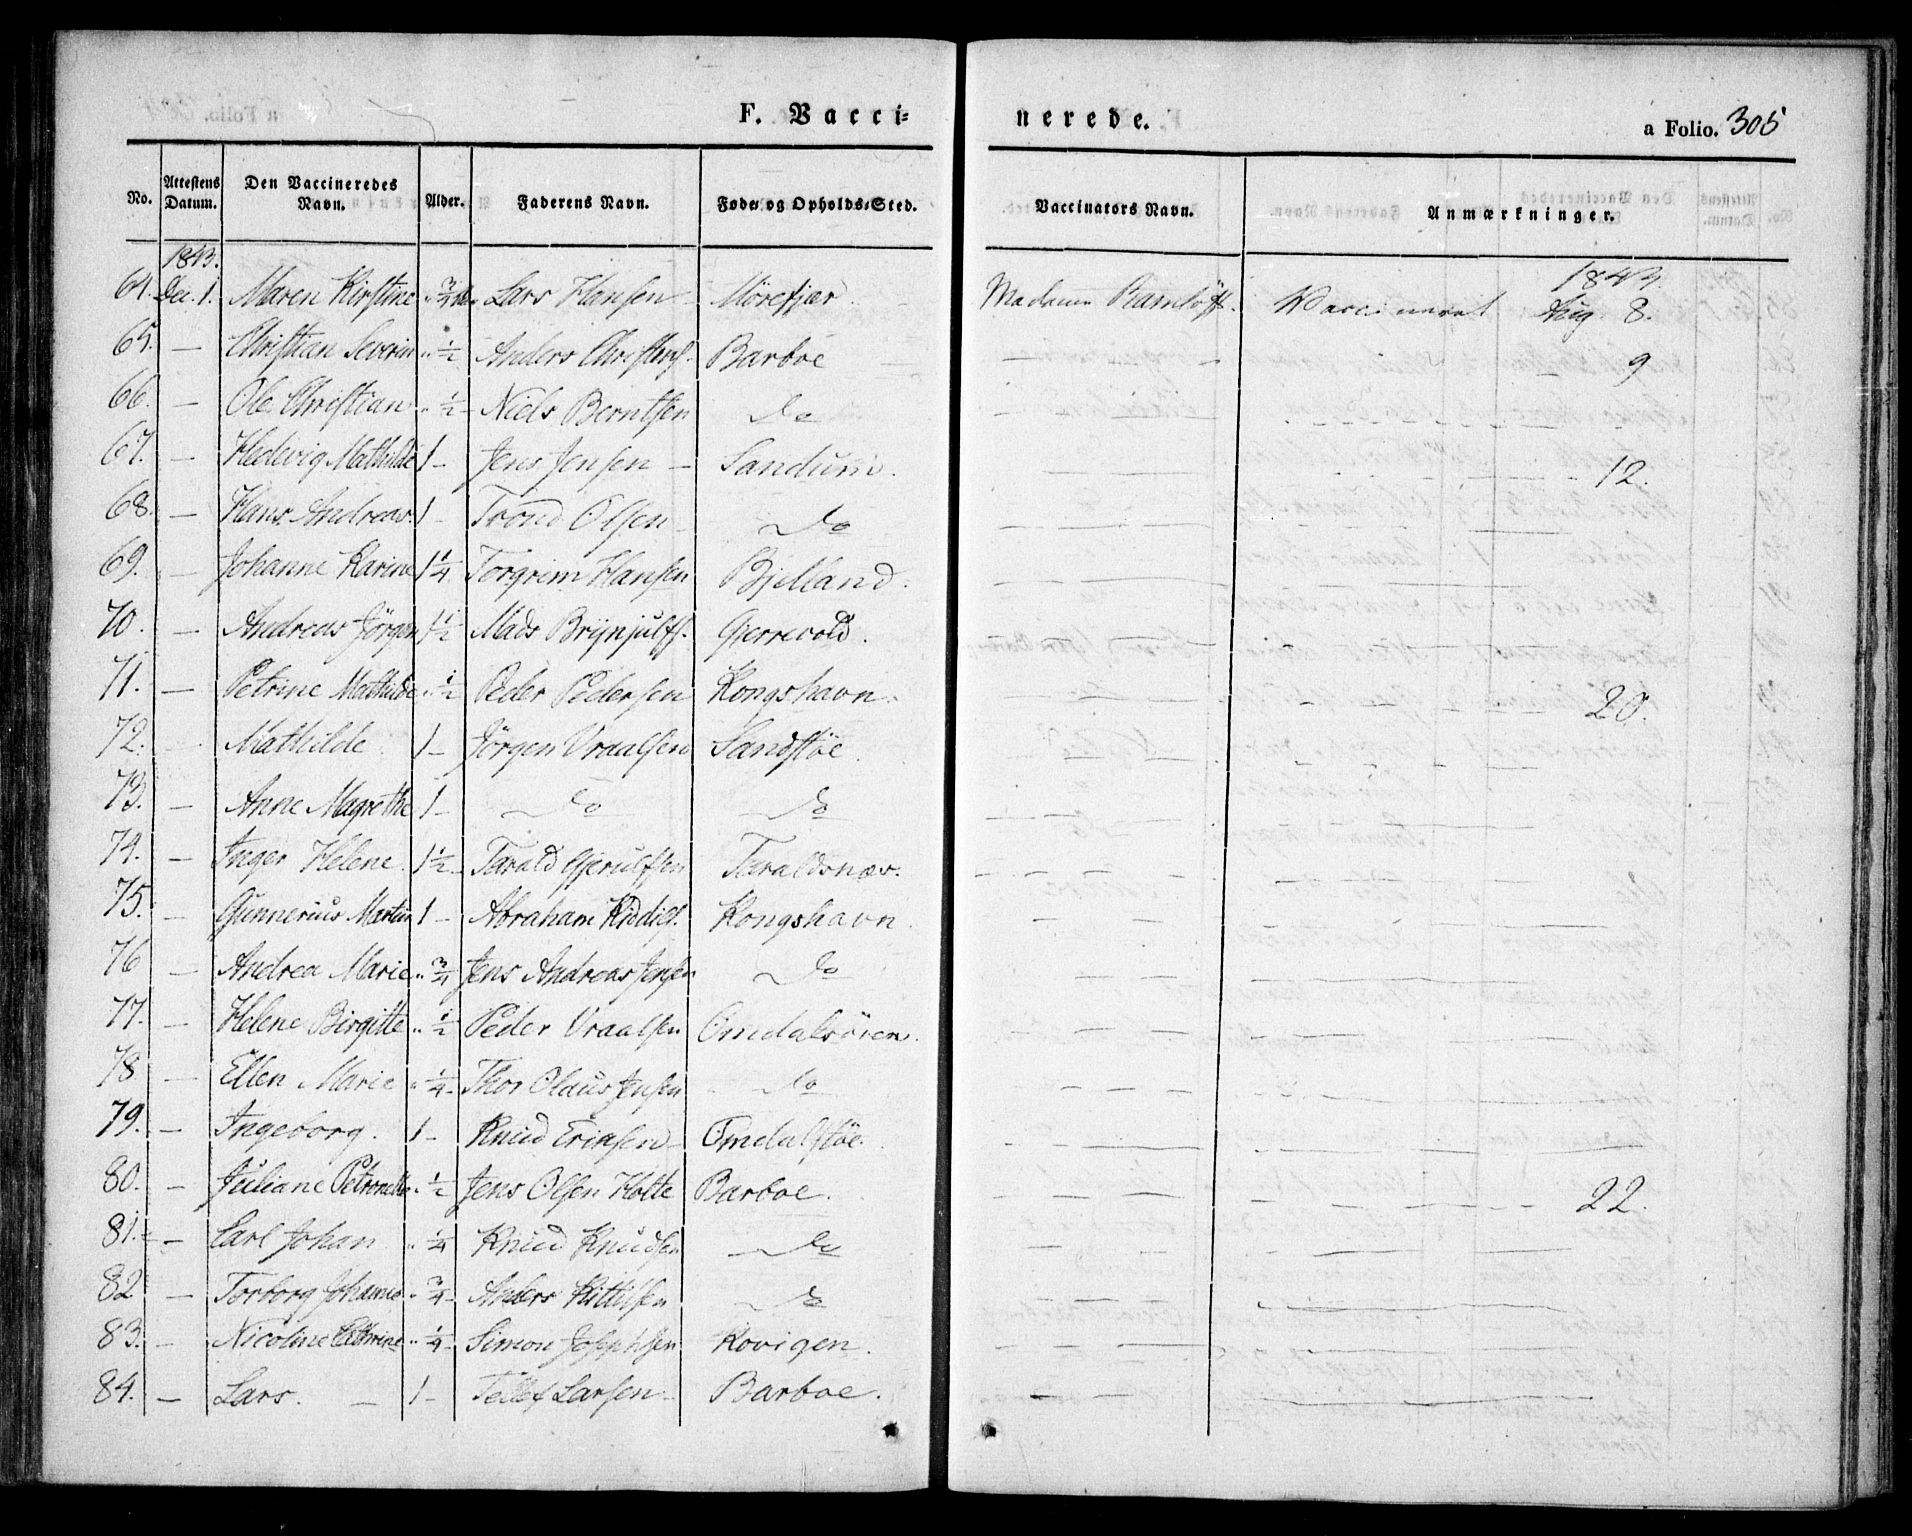 F. Vacci=
nerede.
a Folio. 305
No. Attestens Datum. Den Vaccineredes Navn. Alder. Faderens Navn. Føde= og Opholds=Sted. Vaccinators Navn. Anmærkninger.
1843. 1843.
64. Dec. 1. Maren Kirstine " 3/4 Lars Hansen Mörefjær. Madame Ramlöff. Vaccineret Aug 8.
65. — Christian Severin " 1/2 Anders Christens. Barboe — — — 9
66. — Ole Christian " 1/2 – Niels Berntsen do — —
67. — Hedevig Mathilde 1 – Jens Jensen – Sandum. — — — 12.
68. — Hans Andreas. 1 – Trond Olsen do — —
69. — Johanne Karine 1 1/4 Torgrim Hansen Bjelland. — —
70. — Andreas Jörgen 1 1/2 Mads Brynjulfs. Gjerrevold. — —
71. — Petrine Mathilde " 1/2 Peder Pedersen Kongshavn. — — — 20.
72. — Mathilde 1 – Jörgen Vraalsen Sandstöe. — —
73. — Anne Magrethe 1 – do do — —
74. — Inger Helene. 1 1/2 – Tarald Gjerulfsen Taraldsnæs. — —
75. — Gunnerius Martin 1 – Abraham Kiddels. Kongshavn. — —
76 — Andrea Marie " 3/4 Jens Andreas Jensen do — —
77. — Helene Birgitte " 1/2 Peder Vraalsen Omdalsören. — —
78 — Ellen Marie " 1/4 – Thor Olaus Jensen do — —
79. — Ingeborg. 1 – Knud Eriksen Omdalstöe. — —
80. — Juliane Petronelle " 1/2 Jens Olsen Holte Barboe. — — — 22.
81. — Carl Johan " 1/4 – Knud Knudsen do — —
82 — Torborg Johanne " 3/4 – Anders Kittilsen do — —
83. — Nicoline Cathrine " 1/4 – Simon Josephsen Kovigen. — —
84. — Lars. — 1 – Tellef Larsen Barboe. — —